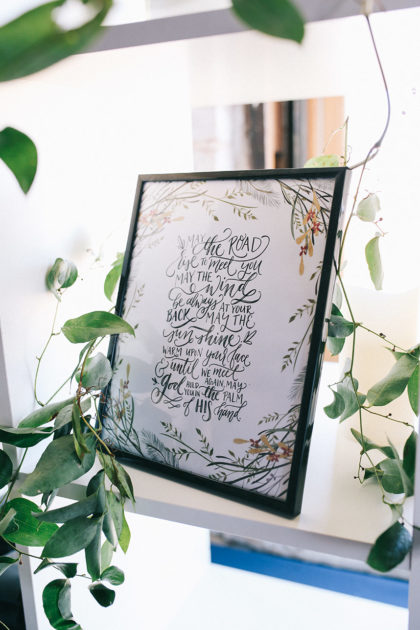 MAY the ROAD
rise to meet you
MAY THE
wind
be always AT YOUR
BACK. MAY THE
sunshine
WARM UPON your face
& until WE MEET
AGAIN, MAY
God HOLD YOU IN the PALM
of HIS hand